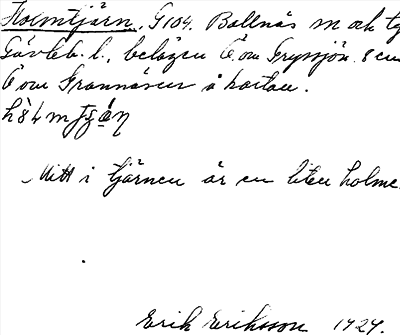 Holmtjärn, G104. Bollnäs sn och tg
Gävleb. l., belägen Ö. om Gryssjön. 8 cm
Ö om Grannäsen å kartan.
Mitt i tjärnen är en liten holme.
Erik Eriksson 1924.